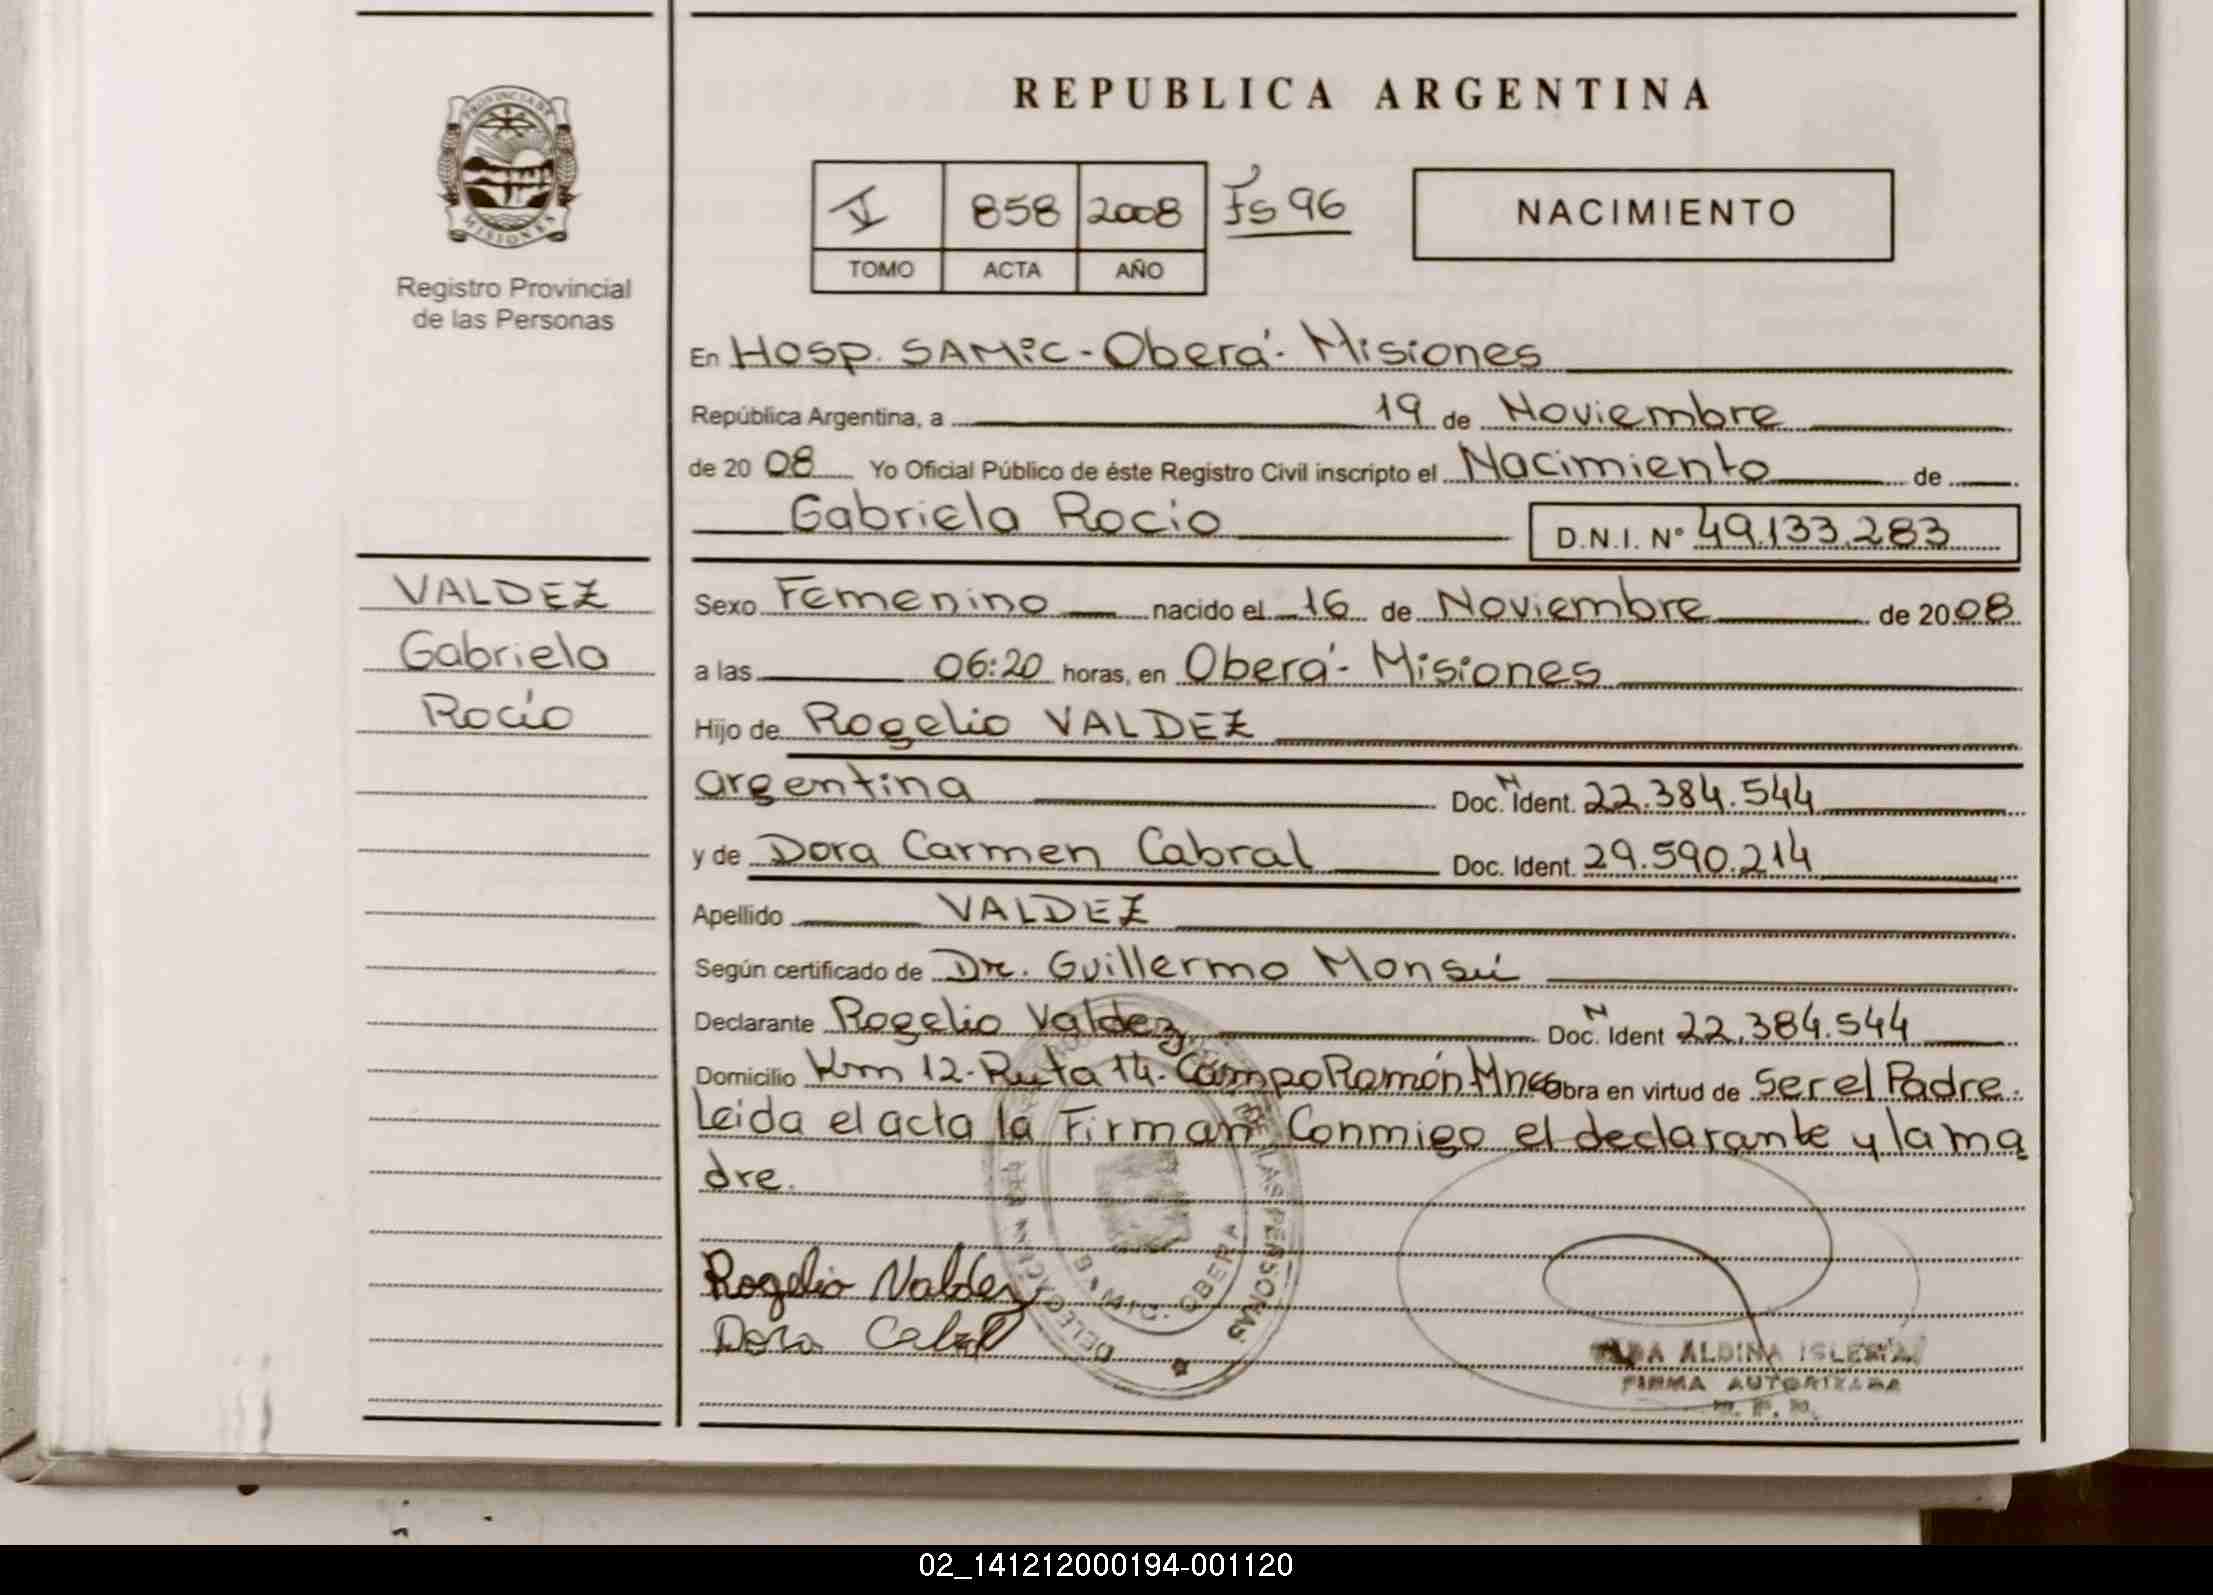 REPUBLICA ARGENTINA
PROVINCIA DE
MISIONES
Registro Provincial
de las Personas
V 858 2008 Fs 96
TOMO ACTA AÑO
NACIMIENTO
En Hosp. SAMIC - Oberá - Misiones
República Argentina, a 19 de Noviembre
de 2008 Yo Oficial Público de éste Registro Civil inscripto el Nacimiento de
Gabriela Rocio D.N.I. N° 49.133.283
VALDEZ
Gabriela
Rocío
Sexo Femenino nacido el 16 de Noviembre de 2008
a las 06:20 horas, en Oberá - Misiones
Hijo de Rogelio VALDEZ
argentina Doc. N Ident. 22.384.544
y de Dora Carmen Cabral Doc. Ident. 29.590.214
Apellido VALDEZ
Según certificado de Dr. Guillermo Monsú
Declarante Rogelio Valdez Doc. N Ident 22.384.544
Domicilio Km 12 - Ruta 14 - Campo Ramón Mnes Obra en virtud de ser el Padre.
Leida el acta la Firman Conmigo el declarante y la ma
dre.
Rogelio Valdez
Dora Cabral
DELEGACION
DE LAS PERSONAS
OBERA
ALDINA IGLESIAS
FIRMA AUTORIZADA
02_141212000194-001120